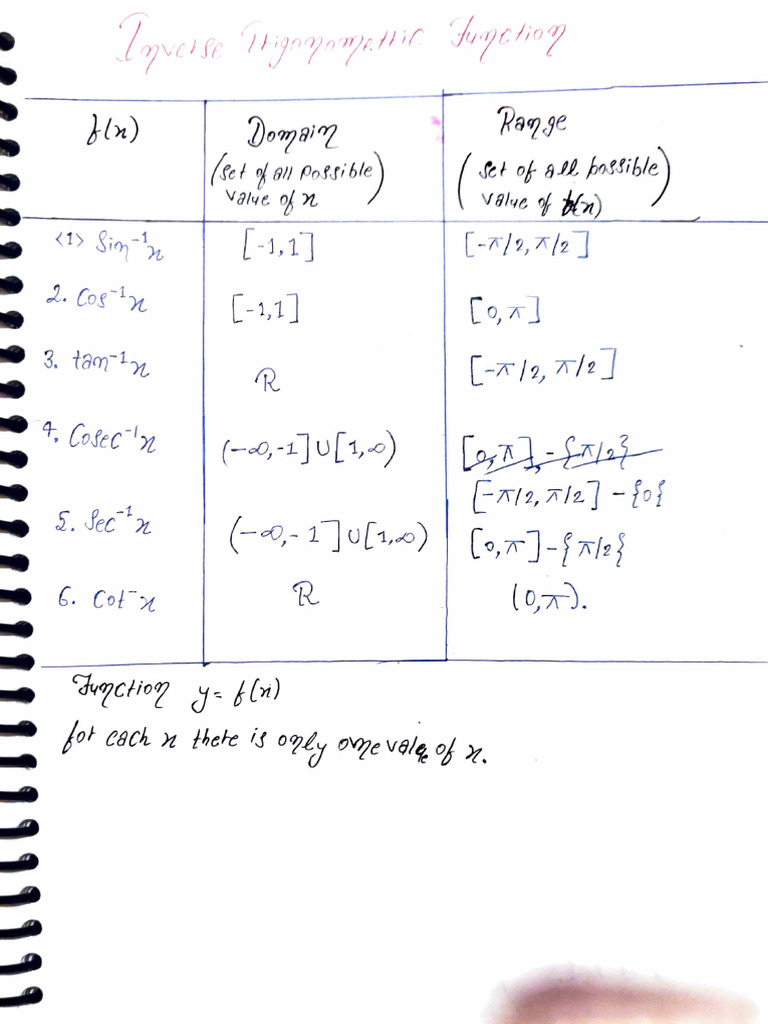 Inverse Trigonometric Function
f(x) Domain Range
(set of all possible (set of all possible
value of x) value of f(x))
<1> Sin⁻¹x [-1,1] [-π/2, π/2]
2. Cos⁻¹x [-1,1] [0, π]
3. tan⁻¹x ℝ [-π/2, π/2]
4. Cosec⁻¹x (-∞,-1]∪[1,∞) [0,π] - {π/2}
[-π/2, π/2] - {0}
5. Sec⁻¹x (-∞,-1]∪[1,∞) [0, π] - {π/2}
6. Cot⁻x ℝ (0,π).
Function y = f(x)
for each x there is only one value of x.